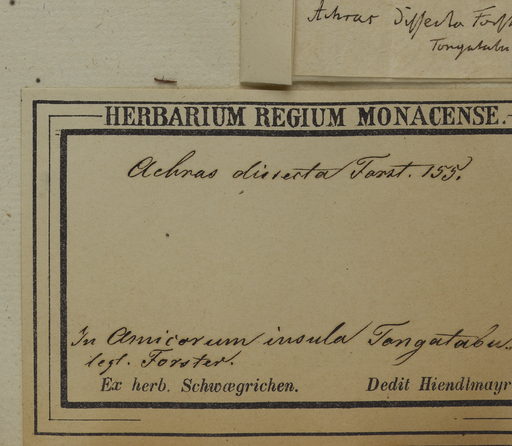 Achras dissecta Forst
Tongatabu
HERBARIUM REGIUM MONACENSE.
Achras dissecta Forst. 155.
In Amicorum insula Tongatabu.
legt. Forster.
Ex herb. Schwægrichen. Dedit Hiendlmayr